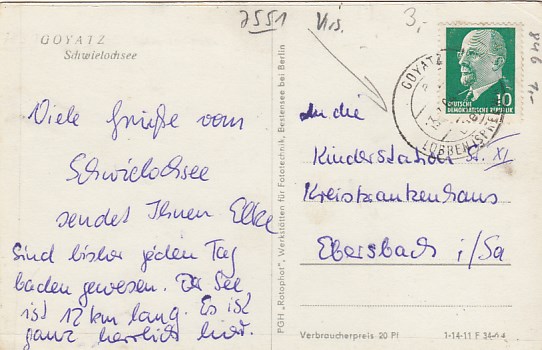 GOYATZ
Schwielochsee
7551
Krs.
3,-
846 1,-
Viele Grüße vom
Schwielochsee
sendet Ihnen Elke
Sind bisher jeden Tag
baden gewesen. Der See
ist 12 km lang. Es ist
ganz herrlich hier.
PGH „Rotophot“, Werkstätten für Fototechnik, Bestensee bei Berlin
GOYATZ
LÜBBEN (SPREE
DEUTSCHE
DEMOKRATISCHE REPUBLIK
10
An die
Kinderstation St. XI
Kreiskrankenhaus
Ebersbach i/Sa
Verbraucherpreis 20 Pf
1-14-11 F